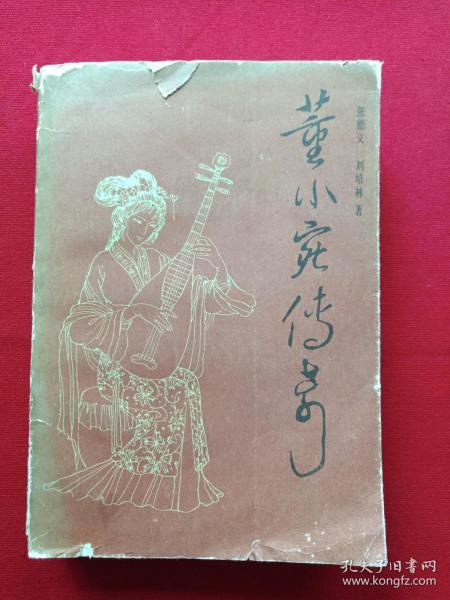 董小宛传奇
张德义 刘培林 著
孔夫子旧书网
www.kongfz.com